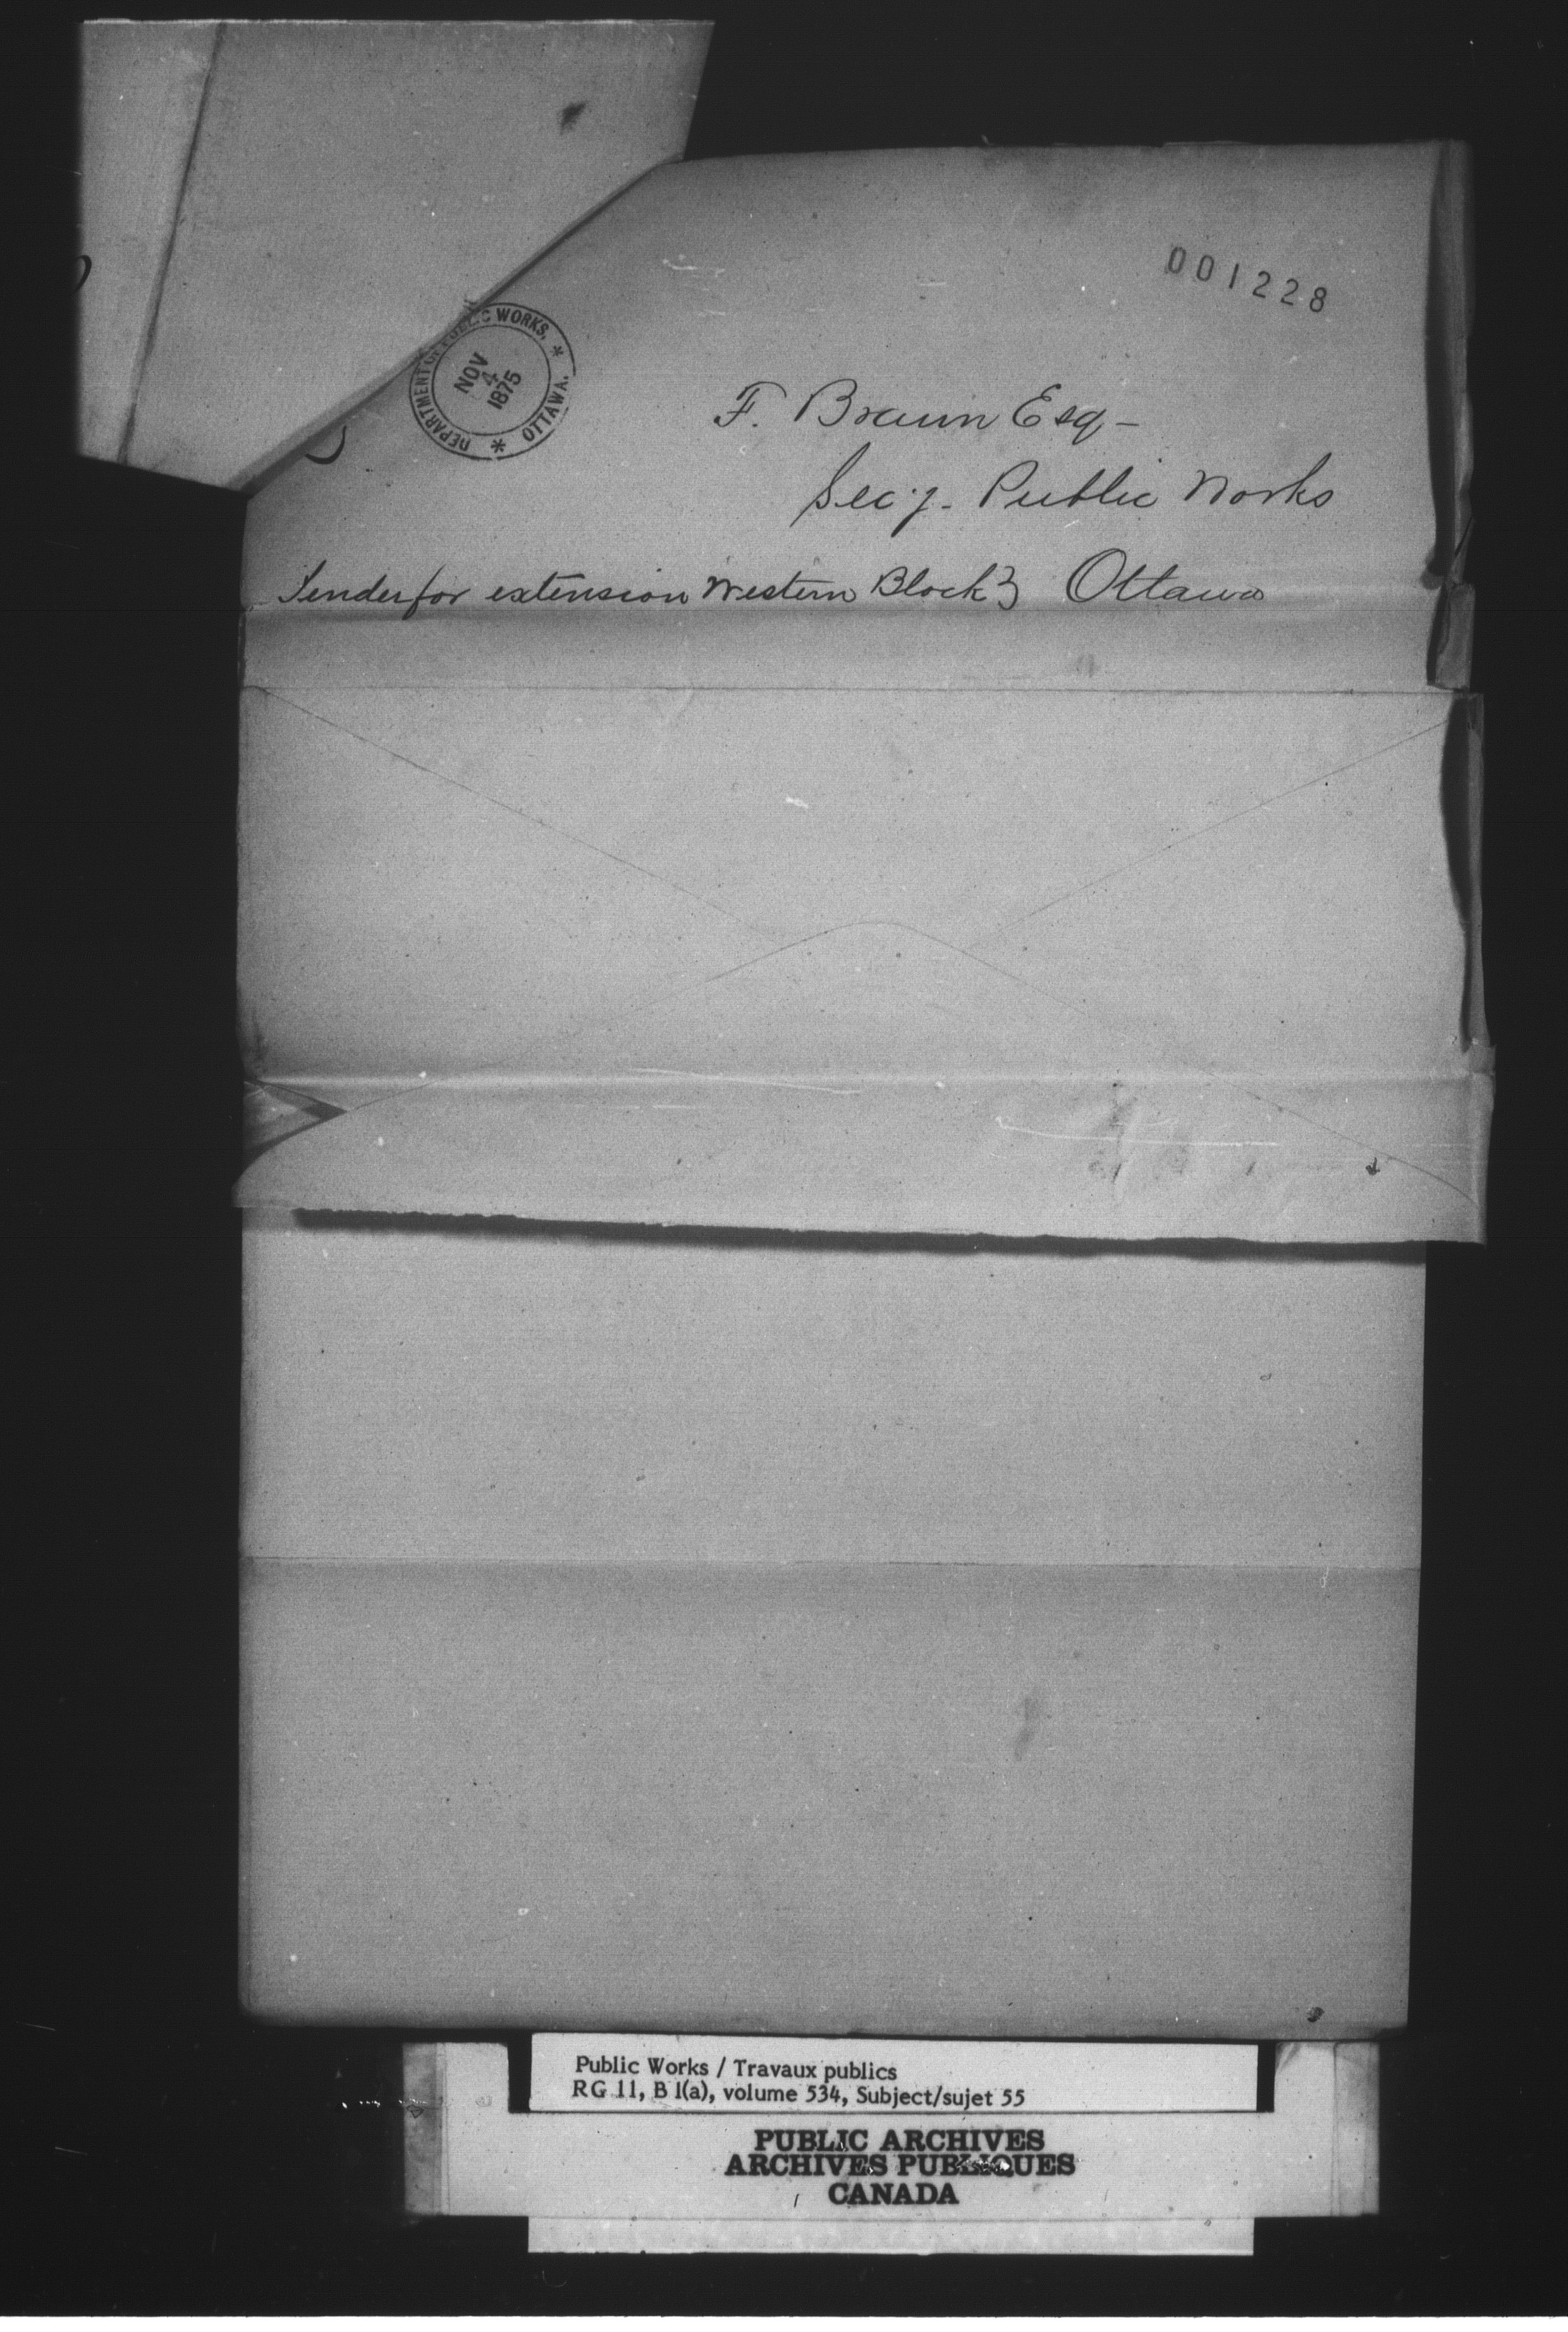 001228
DEPARTMENT OF PUBLIC WORKS, * OTTAWA. *
NOV
4
1875
F. Braun Esq -
Secy. Public Works
Tender for extension Western Block } Ottawa
Public Works / Travaux publics
RG 11, B 1(a), volume 534, Subject/sujet 55
PUBLIC ARCHIVES
ARCHIVES PUBLIQUES
CANADA